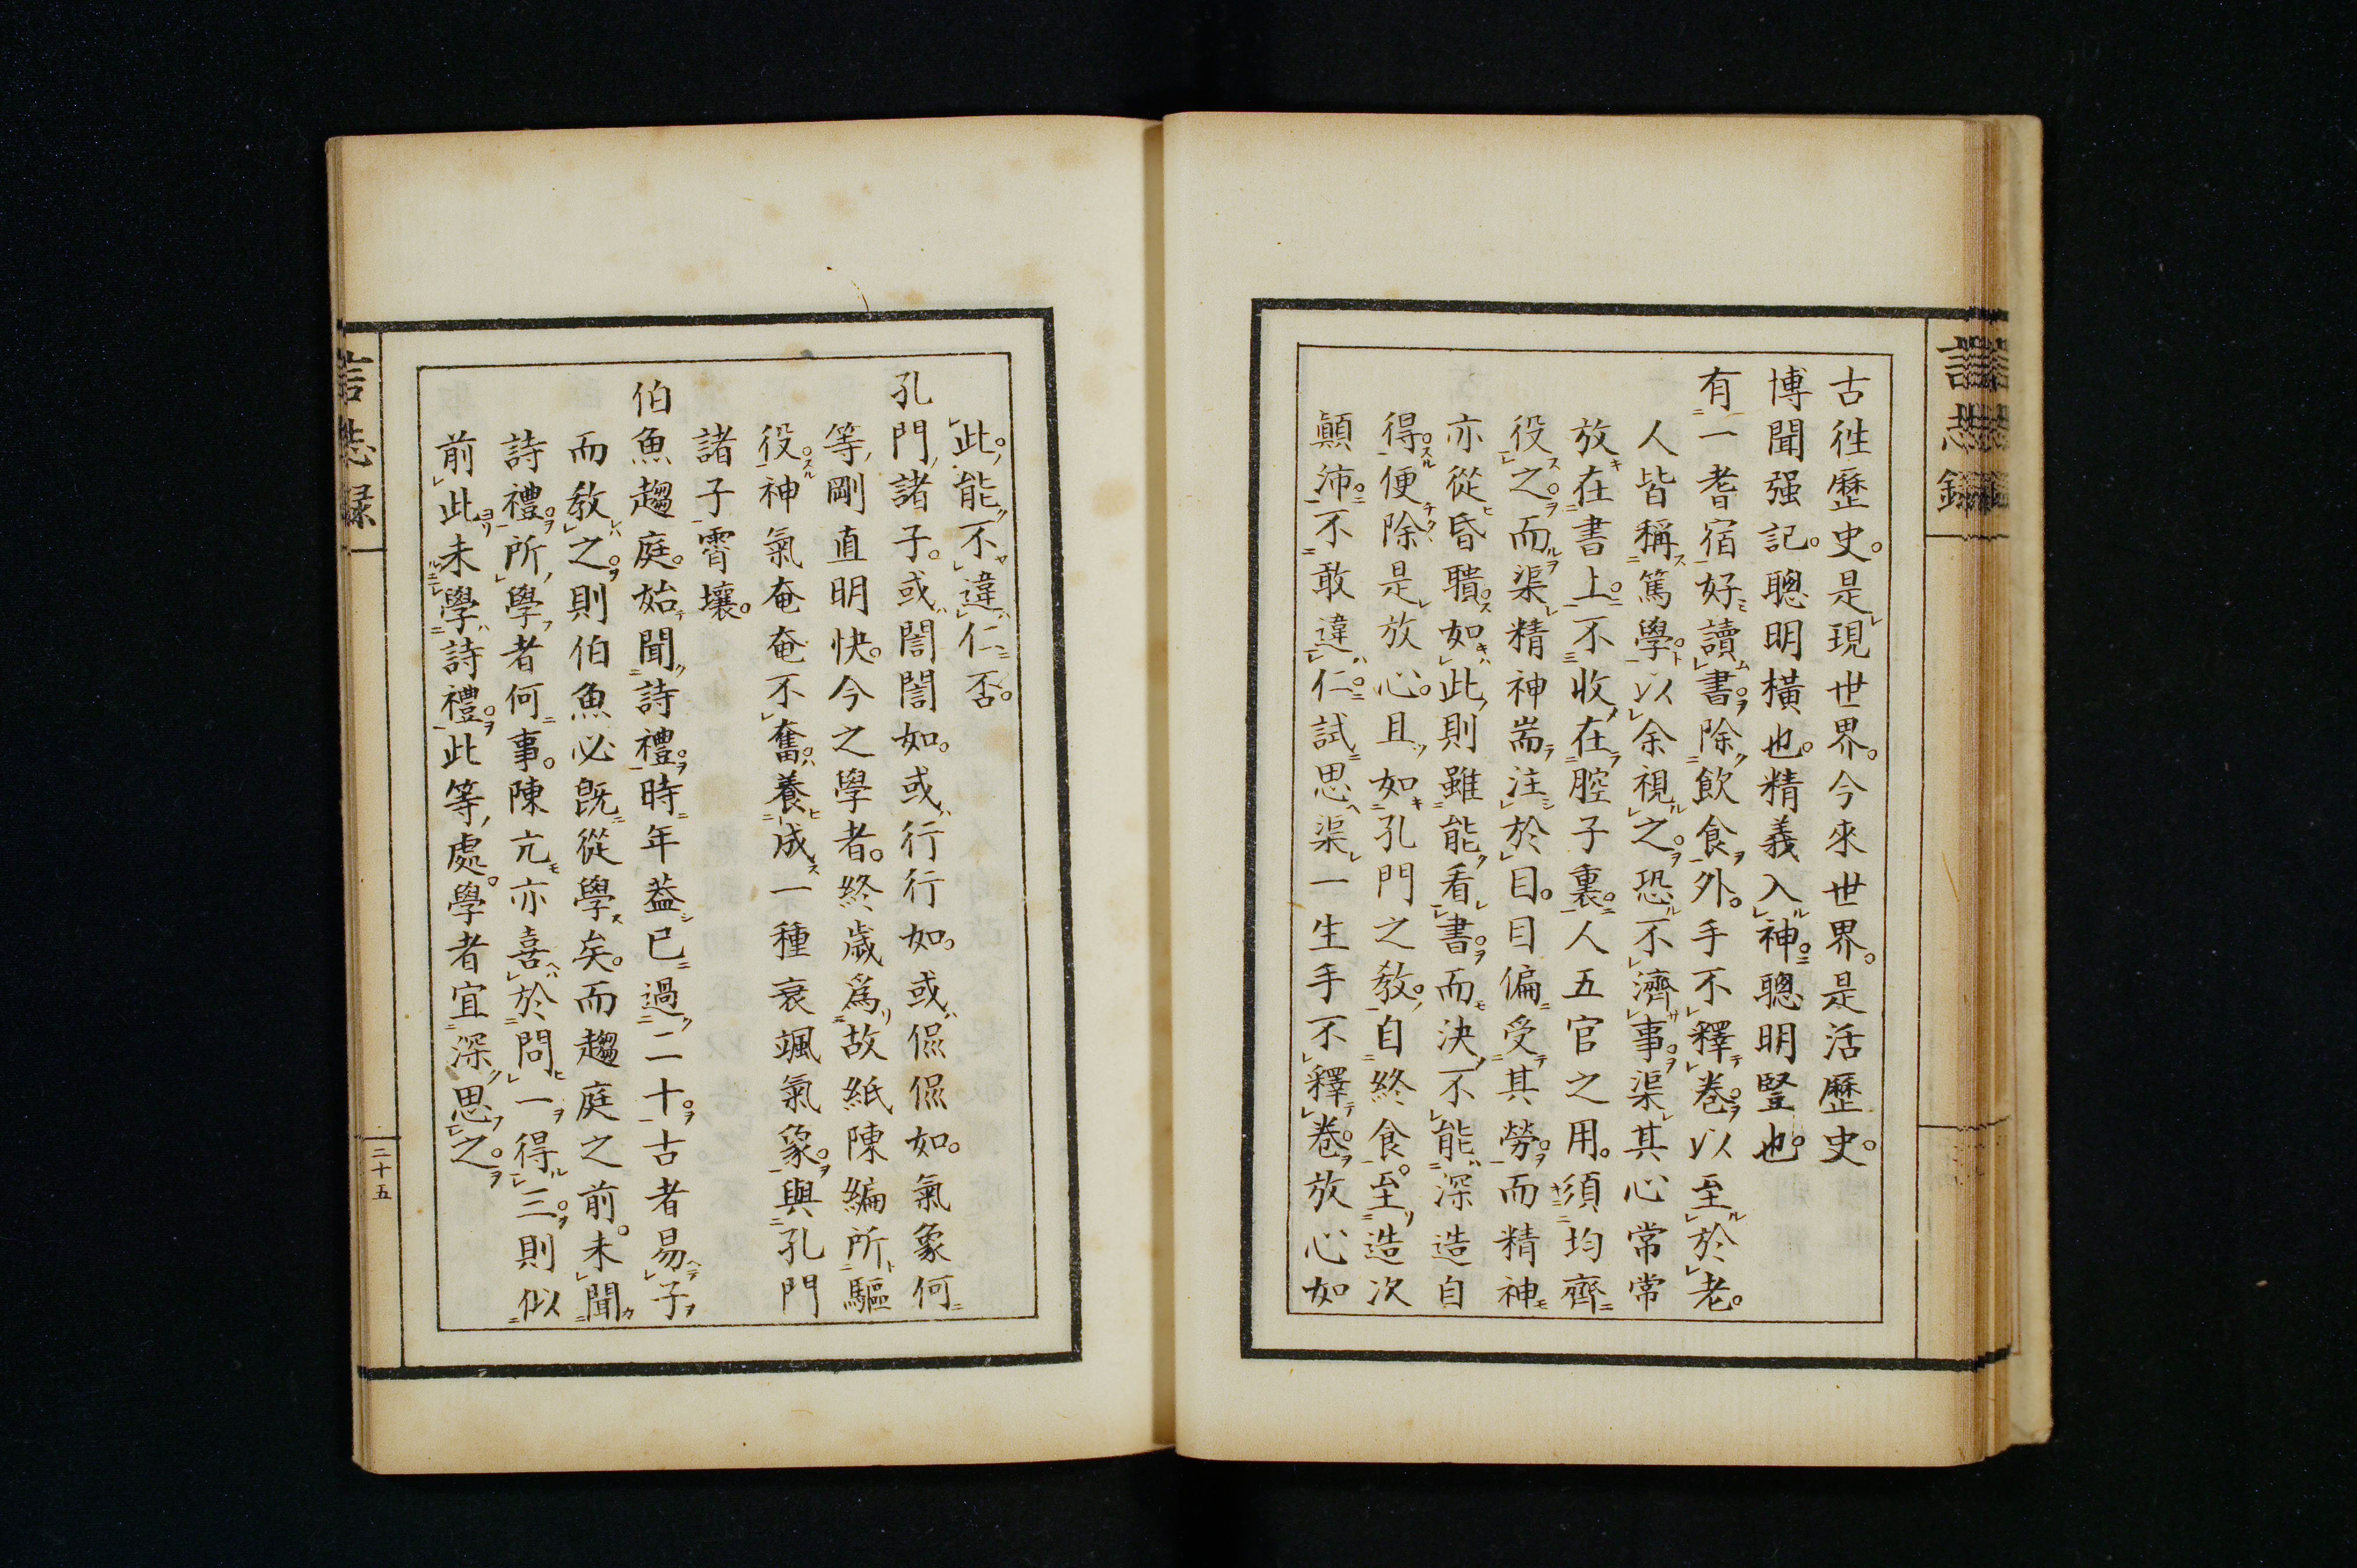 言志録
古徃歷史。是現世界。今來世界。是活歷史。
博聞强記。聰明橫也。精義入神。聰明豎也。
有一耆宿好讀書。除飮食外。手不釋卷。以至於老。
人皆稱篤學。以余視之。恐不濟事。渠其心常常
放在書上。不收在腔子裏。人五官之用。須均齊
役之。而渠精神耑注於目。目偏受其勞。而精神
亦從昏聵。如此則雖能看書。而決不能深造自
得。便除是放心。且如孔門之敎。自終食。至造次
顚沛。不敢違仁。試思渠一生手不釋卷。放心如
此。能不違仁否。
孔門諸子。或誾誾如。或行行如。或侃侃如。氣象何
等剛直明快。今之學者。終歲爲故紙陳編所驅
役。神氣奄奄不奮。養成一種衰颯氣象。與孔門
諸子霄壤。
伯魚趨庭。始聞詩禮。時年蓋已過二十。古者易子
而敎之。則伯魚必旣從學矣。而趨庭之前。未聞
詩禮。所學者何事。陳亢亦喜於問一得三。則似
前此未學詩禮。此等處。學者宜深思之。
言志録
二十五